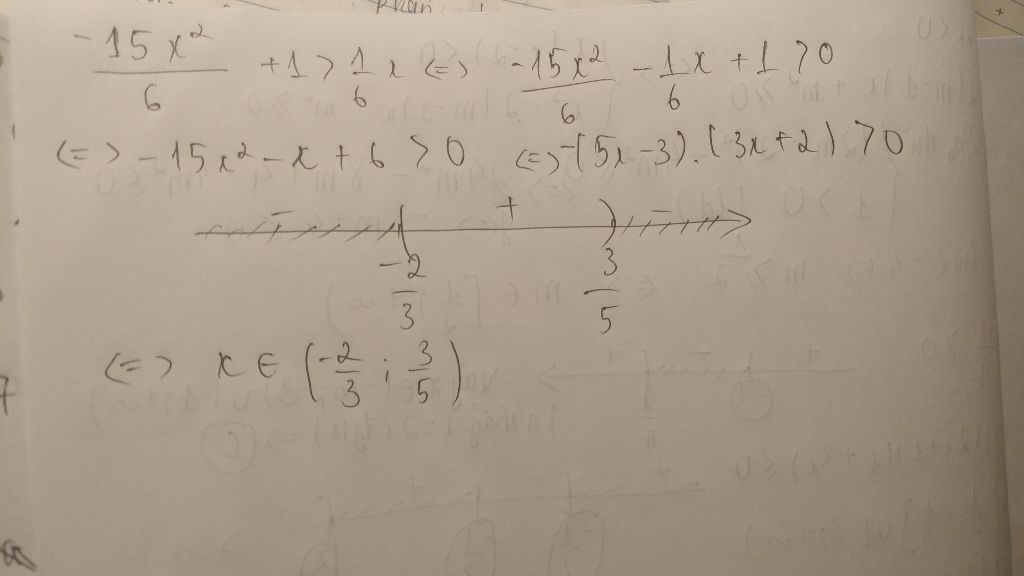 -15x²/6 + 1 > 1/6 x <=> -15x²/6 - 1/6 x + 1 > 0
<=> -15x² - x + 6 > 0 <=> -(5x - 3).(3x + 2) > 0
- + -
-2/3 3/5
<=> x ∈ (-2/3 ; 3/5)